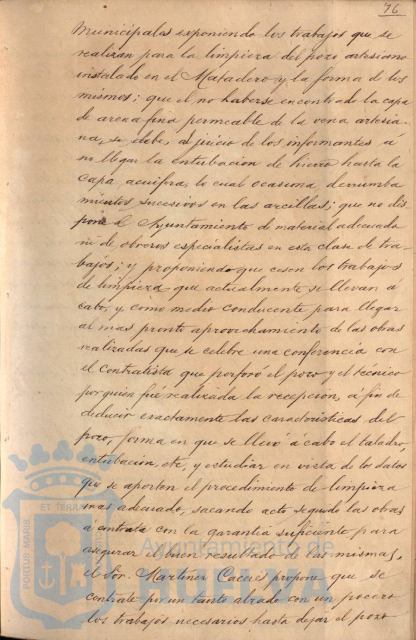 76
Municipales exponiendo los trabajos que se
realizan para la limpieza del pozo artesiano
instalado en el Matadero y la forma de los
mismos; que el no haberse encontrado la capa
de arena fina permeable de la vena artesia-
na, se debe, a juicio de los informantes á
no llegar la entubacion de hierro hasta la
capa acuifra, lo cual ocasiona derrumba
mientos sucesivos en las arcillas; que no dis
pone el Ayuntamiento de material adecuado
ni de obreros especialistas en esta clase de tra-
bajos; y proponiendo que cesen los trabajos
de limpieza que actualmente se llevan á
cabo, y como medio conducente para llegar
al mas pronto aprovechamiento de las obras
realizadas que se celebre una conferencia con
el Contratista que perforó el pozo y el técnico
por quien fué realizada la recepcion, á fin de
deducir exactamente las caracteristicas del
pozo, forma en que se llevó á cabo el taladro,
entubacion, etc, y estudiar en vista de los datos
que se aporten el procedimiento de limpieza
mas adecuado, sacando acto seguido las obras
á contrata con la garantia suficiente para
asegurar el buen resultado de las mismas,
el Sr. Martinez Caceres propone que se
contrate por un tanto alzado con un pocero
los trabajos necesarios hasta dejar el pozo
PORTUS MARIS ET TERRAE
Ayuntamiento de
HUELVA